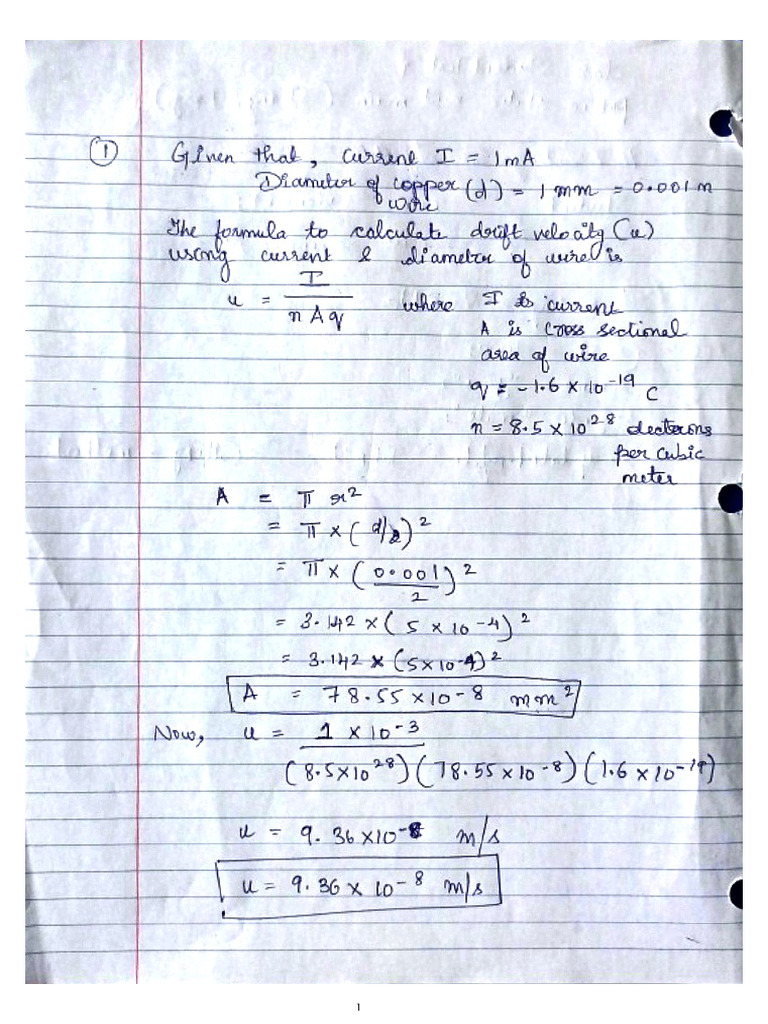 ① Given that, current I = 1mA
Diameter of copper (d) = 1 mm = 0.001 m
wire
The formula to calculate drift velocity (u)
using current & diameter of wire is
u = I / n A q where I is current
A is cross sectional
area of wire
q = -1.6 × 10⁻¹⁹ C
n = 8.5 × 10²⁸ electrons
per cubic
meter
A = π r²
= π × (d/2)²
= π × (0.001/2)²
= 3.142 × (5 × 10⁻⁴)²
= 3.142 × (5 × 10⁻⁴)²
A = 78.55 × 10⁻⁸ mm²
Now, u = 1 × 10⁻³ / (8.5 × 10²⁸) (78.55 × 10⁻⁸) (1.6 × 10⁻¹⁹)
u = 9.36 × 10⁻⁸ m/s
u = 9.36 × 10⁻⁸ m/s
1